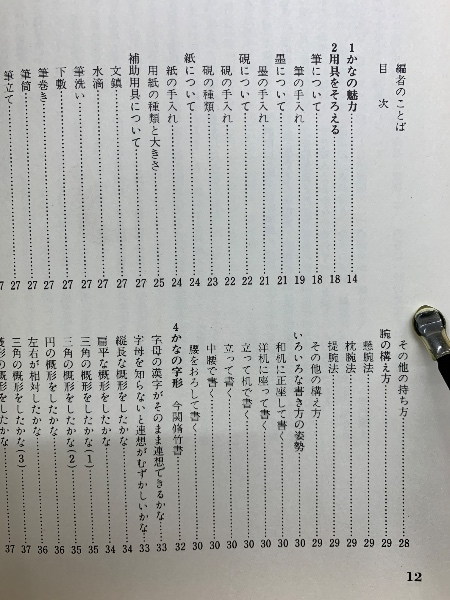 編者のことば
目次
1かなの魅力……14
2用具をそろえる……18
筆について……18
筆の手入れ……19
墨について……21
墨の手入れ……21
硯について……22
硯の手入れ……22
硯の種類……23
紙について……24
紙の手入れ……24
用紙の種類と大きさ……25
補助用具について……27
文鎮……27
水滴……27
筆洗い……27
下敷……27
筆巻き……27
筆筒……27
筆立て……27
その他の持ち方……28
腕の構え方……29
懸腕法……29
枕腕法……29
提腕法……29
その他の構え方……29
いろいろな書き方の姿勢……30
和机に正座して書く……30
洋机に座って書く……30
立って机で書く……30
立って書く……30
中腰で書く……30
腰をおろして書く……30
4かなの字形 今関脩竹書……32
字母の漢字がそのまま連想できるかな……33
字母を知らないと連想がむずかしいかな……33
縦長な概形をしたかな……34
扁平な概形をしたかな……34
三角の概形をしたかな(1)……35
三角の概形をしたかな(2)……35
円の概形をしたかな……36
左右が相対したかな……36
三角の概形をしたかな(3)……37
形の概形をしたかな……37
12